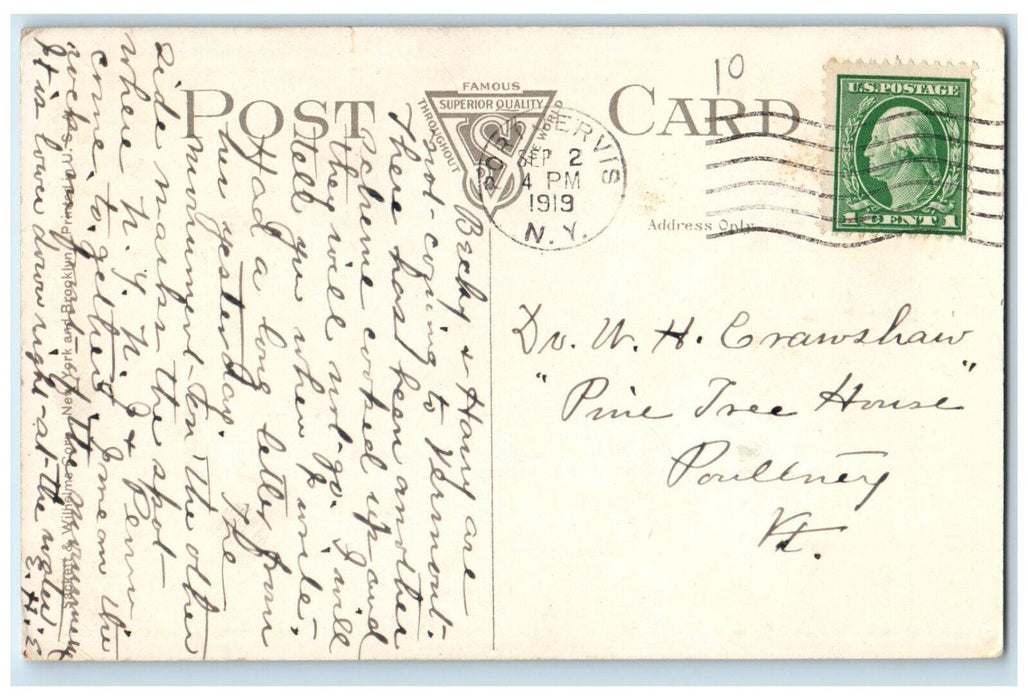 POST CARD
FAMOUS
SUPERIOR QUALITY
THROUGHOUT
THE WORLD
10
U.S. POSTAGE
1 CENT 1
PORT JERVIS
SEP 2
4 PM
1919
N.Y.
Address Only
Dr. W. H. Crawshaw
"Pine Tree House"
Poultney
Vt.
Becky & Harry are
not coming to Vermont.
There has been another
scheme cooked up and
they will not go. I will
tell you when I write.
Had a long letter from
her yesterday. The
monument on the other
side marks the spot
where N.Y. N.J. & Penn
come together. I mean the
rock in front of the monument
It is lower down right at the water
E.H.C.
Sackett & Wilhelms Corp. New York and Brooklyn, Printed in U.S.A.